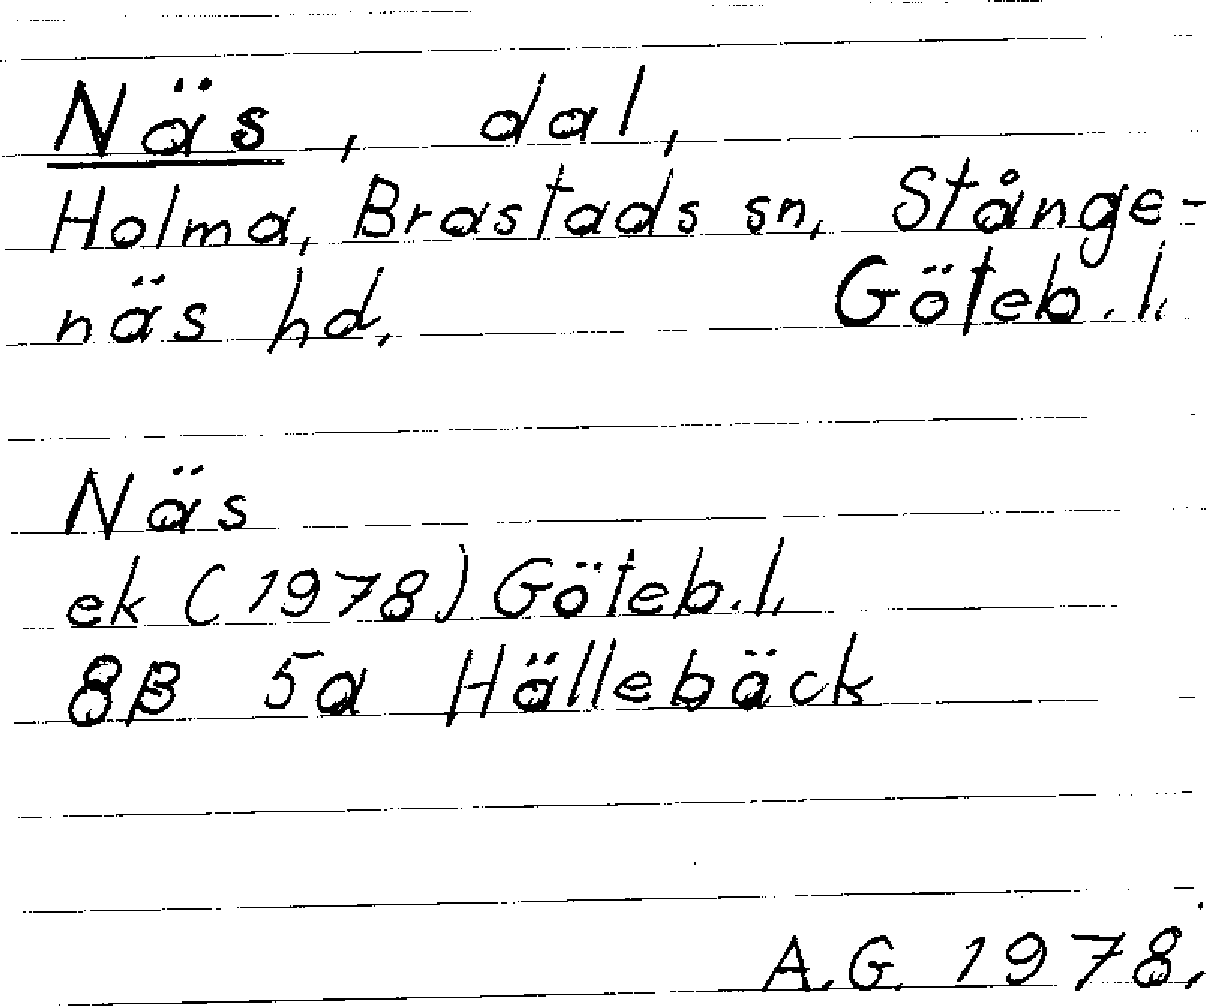 Näs, dal,
Holma, Brastads sn, Stånge-
näs hd. Göteb. l.
Näs
ek (1978) Göteb. l.
8B 5a Hällebäck
A.G. 1978.